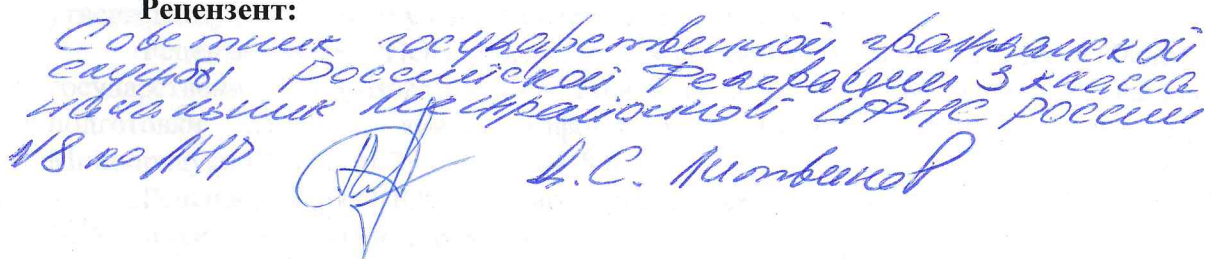 Рецензент:
Советник государственной гражданской
службы Российской Федерации 3 класса
начальник Межрайонной ИФНС России
№8 по ЛНР А.С. Литвинов